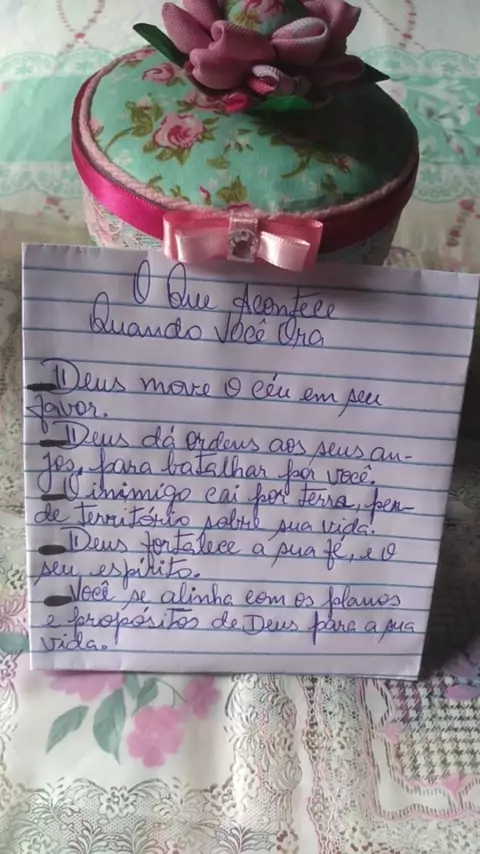 O Que Acontece
Quando Você Ora
Deus move o céu em seu
favor.
Deus dá ordens aos seus an-
jos, para batalhar por você.
O inimigo cai por terra, per-
de território sobre sua vida.
Deus fortalece a sua fé, e o
seu espírito.
Você se alinha com os planos
e propósitos de Deus para a sua
vida.